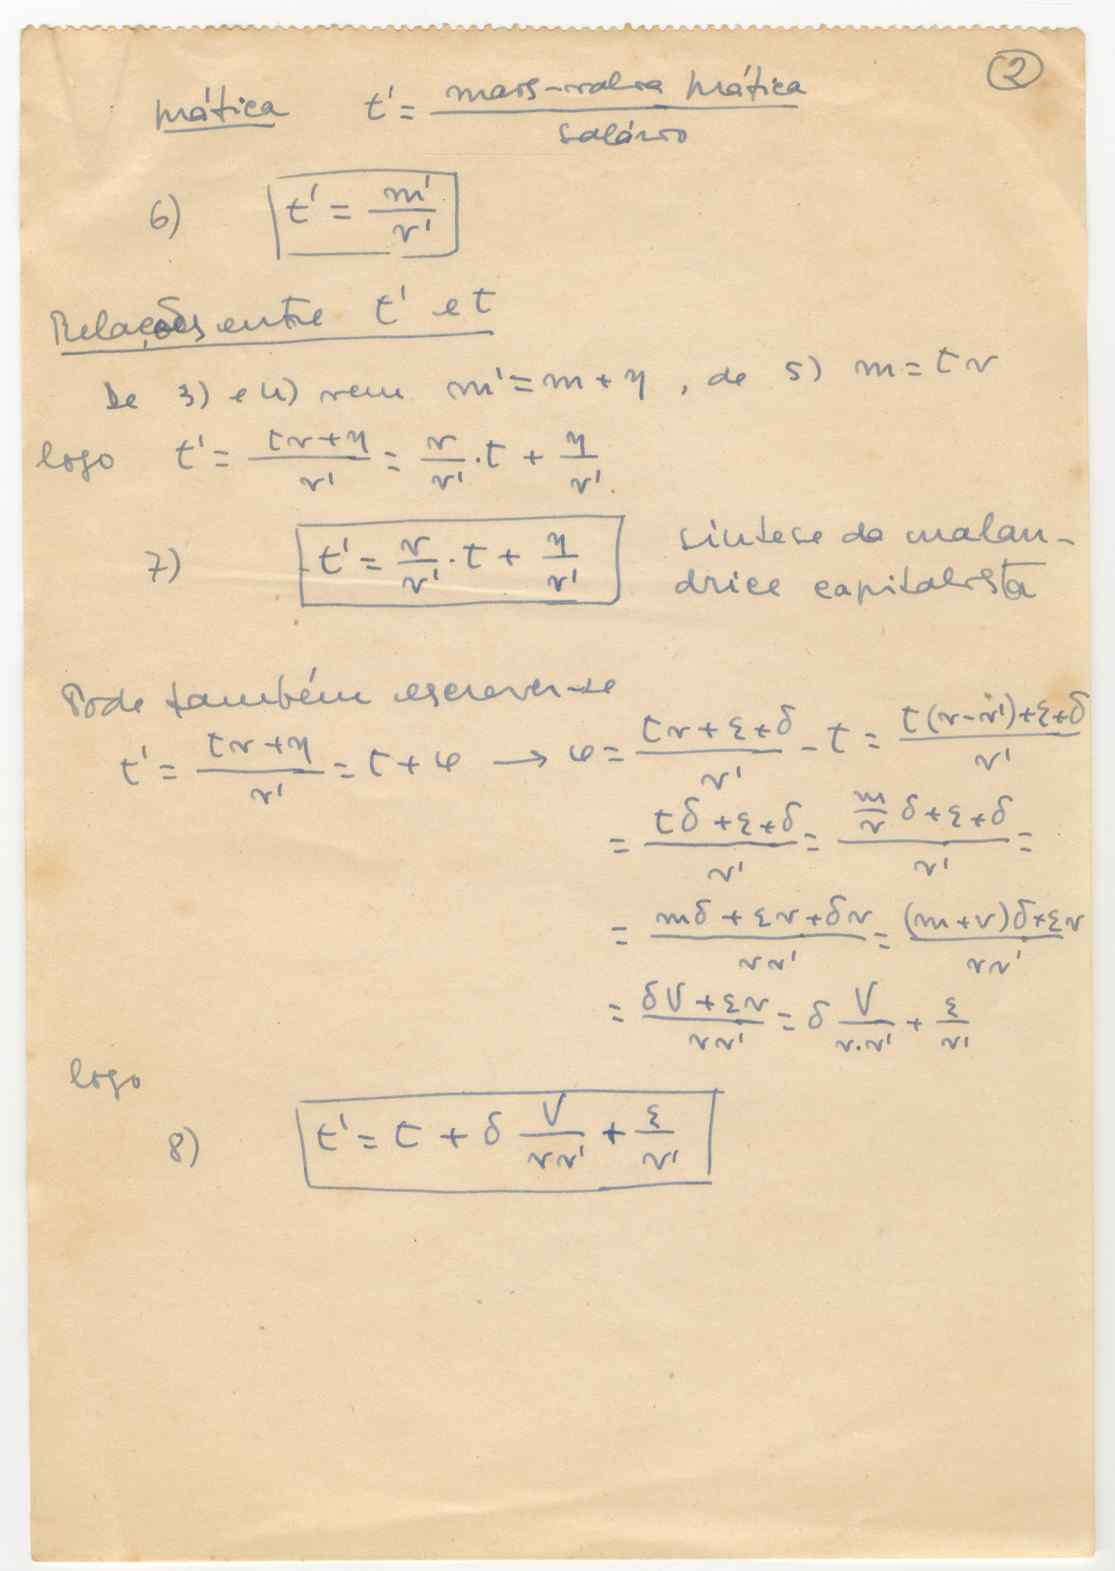 ②
prática t' = mais-valia prática / salário
6) t' = m'/v'
Relações entre t' e t
De 3) e 4) vem m' = m + η , de 5) m = t v
logo t' = (tv + η)/v' = v/v' · t + η/v'.
7) t' = v/v' · t + η/v' síntese da malan-
drice capitalista
Pode também escrever-se
t' = (tv + η)/v' = t + φ → φ = (tv + ε + δ)/v' - t = (t(v - v') + ε + δ)/v'
= (tδ + ε + δ)/v' = (m/v δ + ε + δ)/v' =
= (mδ + εv + δv)/vv' = ((m + v)δ + εv)/vv'
= (δV + εv)/vv' = δ V/v·v' + ε/v'
logo
8) t' = t + δ V/vv' + ε/v'